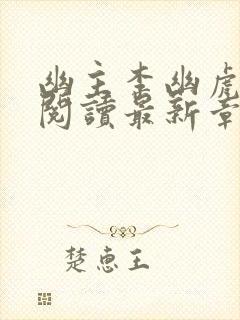 幽主李幽虎
閱讀最新章
楚惠王